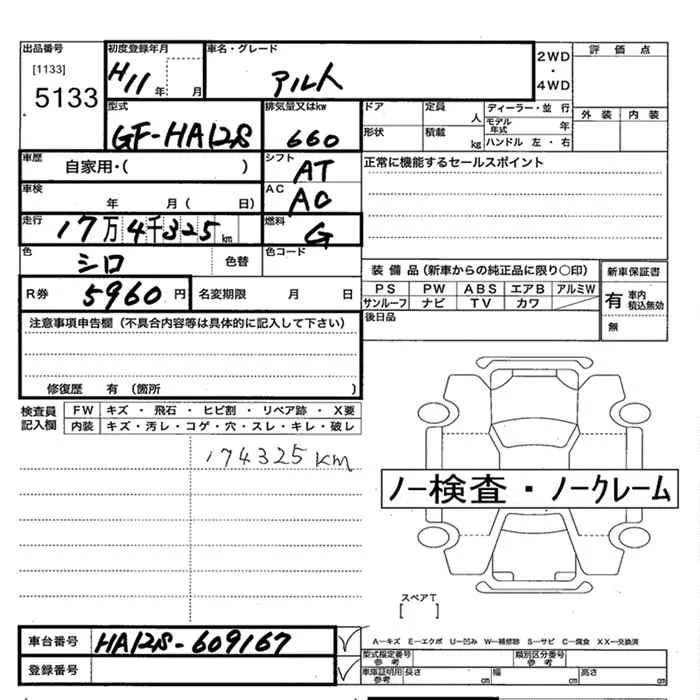 出品番号 初度登録年月 車名・グレード 評価点
[1133] 2WD
H11 アルト ・
5133 年 月 4WD
型式 排気量又はkw ドア 定員 ディーラー・並 行 外 装 内 装
人 モデル年式 年
GF-HA12S 660 形状 積載 kg ハンドル 左・右
車歴 シフト 正常に機能するセールスポイント
自家用・( ) AT
車検 AC
年 月( 日) AC
走行 燃料
17万4千325km G
色 色コード
シロ 色替 装備品(新車からの純正品に限り○印) 新車保証書
R券 5960円 名変期限 月 日 PS PW ABS エアB アルミW 有 車内積込無効
サンルーフ ナビ TV カワ
注意事項申告欄(不具合内容等は具体的に記入して下さい) 後日品 無
修復歴 有(箇所 )
検査員記入欄 FW キズ・飛石・ヒビ割・リペア跡・X要
内装 キズ・汚レ・コゲ・穴・スレ・キレ・破レ
174325km
ノー検査・ノークレーム
スペアT
[ ]
車台番号 HA12S-609167 A−キズ E−エクボ U−凹み W−補修跡 S−サビ C−腐食 XX−交換済
型式指定番号 参考 類別区分番号 参考
登録番号 車庫証明用 参考 長さ cm 幅 cm 高さ cm